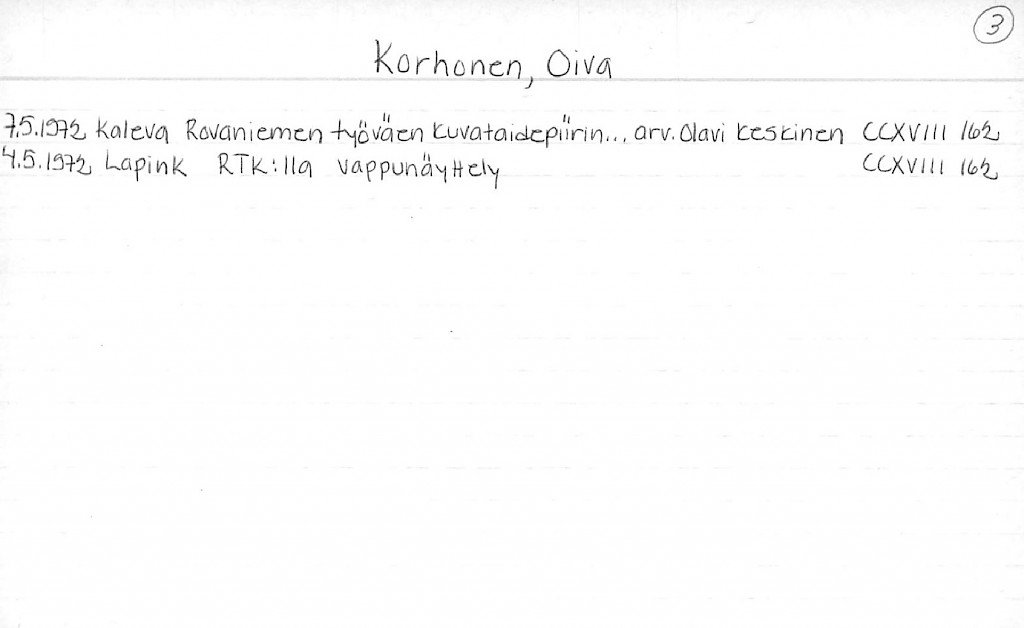 3
Korhonen, Oiva
7.5.1972 Kaleva Rovaniemen työväen kuvataidepiirin... arv. Olavi Keskinen CCXVIII 162
4.5.1972 Lapink RTK:lla vappunäyttely CCXVIII 162